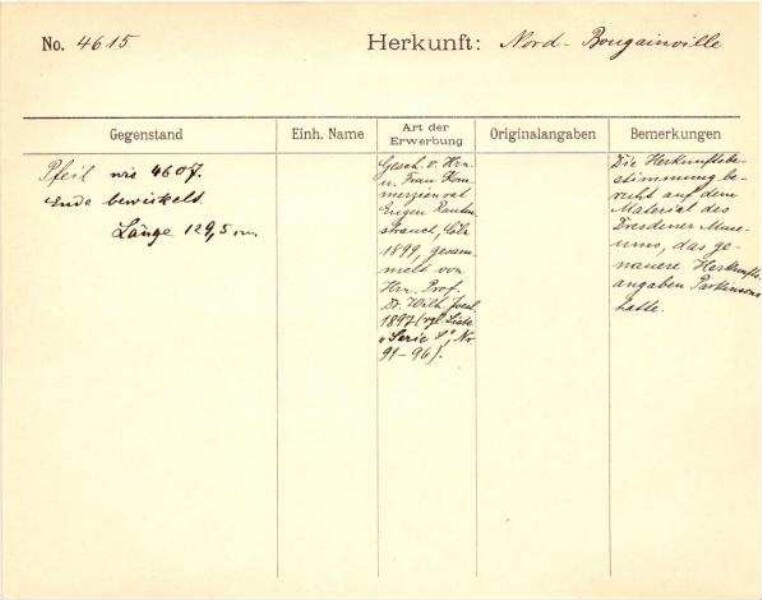 No. 4615
Herkunft: Nord-Bougainville
Gegenstand
Einh. Name
Art der
Erwerbung
Originalangaben
Bemerkungen
Pfeil wie 4607.
Ende bewickelt.
Länge 129,5 cm.
Gesch. v. Hrn.
u. Frau Kom-
merzienrat
Eugen Rauten-
strauch, Cöln
1899, gesam-
melt von
Hrn. Prof.
Dr. Wilh. Joest
1897 (vgl. Liste
„Serie", No
91-96).
Die Herkunftsbe-
stimmung be-
ruht auf dem
Material des
Dresdener Muse-
ums, das ge-
nauere Herkunfts-
angaben Parkinsons
hatte.